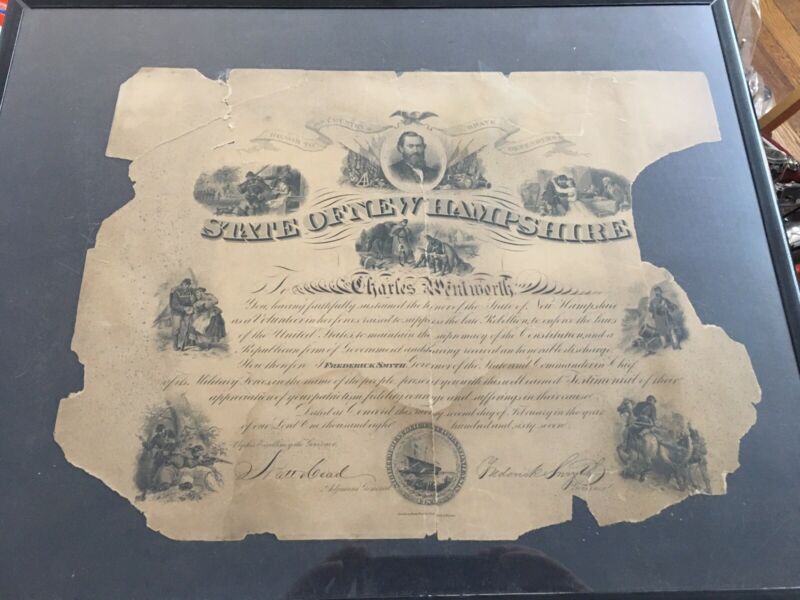 HONOR TO COUNTRY'S BRAVE DEFENDERS
STATE OF NEW HAMPSHIRE
To Charles Wentworth
You, having faithfully sustained the honor of the State of New Hampshire
as a Volunteer in her forces raised to suppress the late Rebellion, to enforce the laws
of the United States, to maintain the supremacy of the Constitution, and a
Republican form of Government and having received an honorable discharge
Now therefore I FREDERICK SMYTH Governor of the State and Commander in Chief
of its Military Forces in the name of the people, present you with this well earned Testimonial of their
appreciation of your patriotism, fidelity, courage and sufferings in their cause.
Dated at Concord this twenty second day of February in the year
of our Lord One thousand eight hundred and sixty seven
By his Excellency the Governor
Natt Head
Frederick Smyth
Adjutant General
Governor